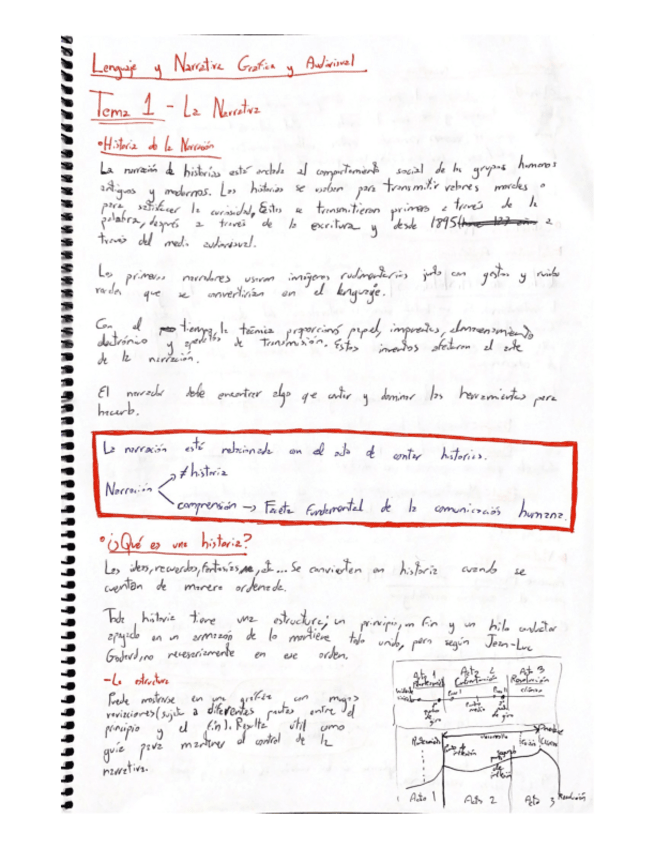 Lenguaje y Narrativa Grafica y Audiovisual
Tema 1 - La Narrativa
•Historia de la Narración
La narración de historias está anclada al comportamiento social de los grupos humanos
antiguos y modernos. Las historias se usaban para transmitir valores morales o
para satisfacer la curiosidad. Estas se transmitieron primero a través de la
palabra, después a través de la escritura y desde 1895 a
través del medio audiovisual.
Los primeros narradores usaron imágenes rudimentarias junto con gestos y ruidos
que se convertirían en el lenguaje.
Con el tiempo, la técnica proporcionó papel, imprentas, almacenamiento
electrónico y aparatos de transmisión. Estos inventos afectaron el arte
de la narración.
El narrador debe encontrar algo que contar y dominar las herramientas para
hacerlo.
La narración está relacionada con el acto de contar historias.
Narración
≠ historia
comprensión → Faceta fundamental de la comunicación humana.
•¿Qué es una historia?
Las ideas, recuerdos, fantasías, etc... Se convierten en historia cuando se
cuentan de manera ordenada.
Toda historia tiene una estructura; un principio, un fin y un hilo conductor
apoyado en un armazón de lo mantiene todo unido, pero según Jean-Luc
Godard, no necesariamente en ese orden.
-La estructura
Puede mostrarse en una gráfica con muchas
variaciones (sujeta a diferentes pautas entre el
principio y el fin). Resulta útil como
guía para mantener el control de la
narrativa.
Acto 1 Acto 2 Acto 3
Planteamiento Confrontación Resolución
clímax
Punto medio
Crisis Clímax
Acto 1 Acto 2 Acto 3 Resolución